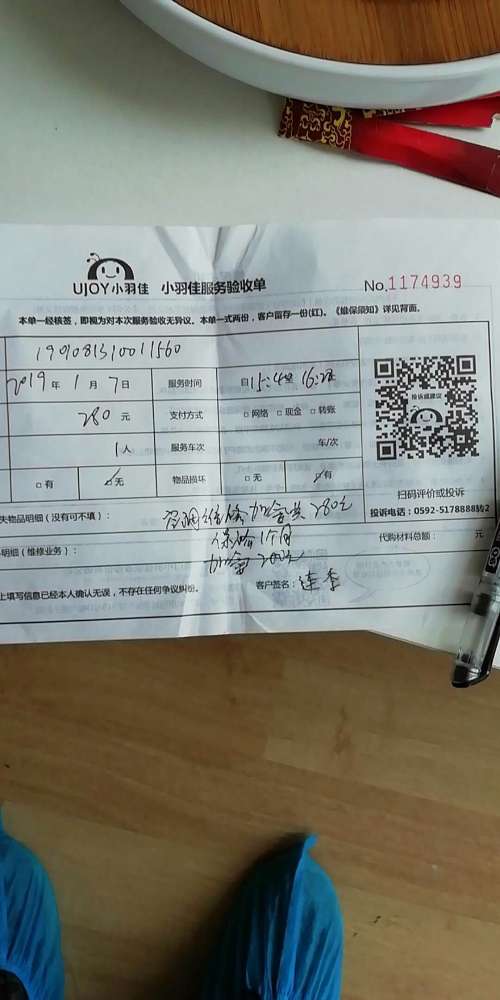 UJOY小羽佳 小羽佳服务验收单 No.1174939
本单一经核签，即视为对本次服务验收无异议。本单一式两份，客户留存一份(红)。《维保须知》详见背面。
2019年1月7日 服务时间 自15:4 16:2
280元 支付方式 □网络 □现金 □转账
1人 服务车次 车/次
□有 □无 物品损坏 □无 □有
投诉或建议
扫码评价或投诉
投诉电话：0592-5178888转2
失物品明细（没有可不填）： 空调维修加雪类280元
保修1个月
料明细（维修业务）： 代购材料总额： 元
加雪200元
上填写信息已经本人确认无误，不存在任何争议纠纷。 客户签名：